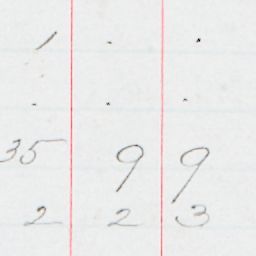 / . .
. . .
35 9 9
2 2 3